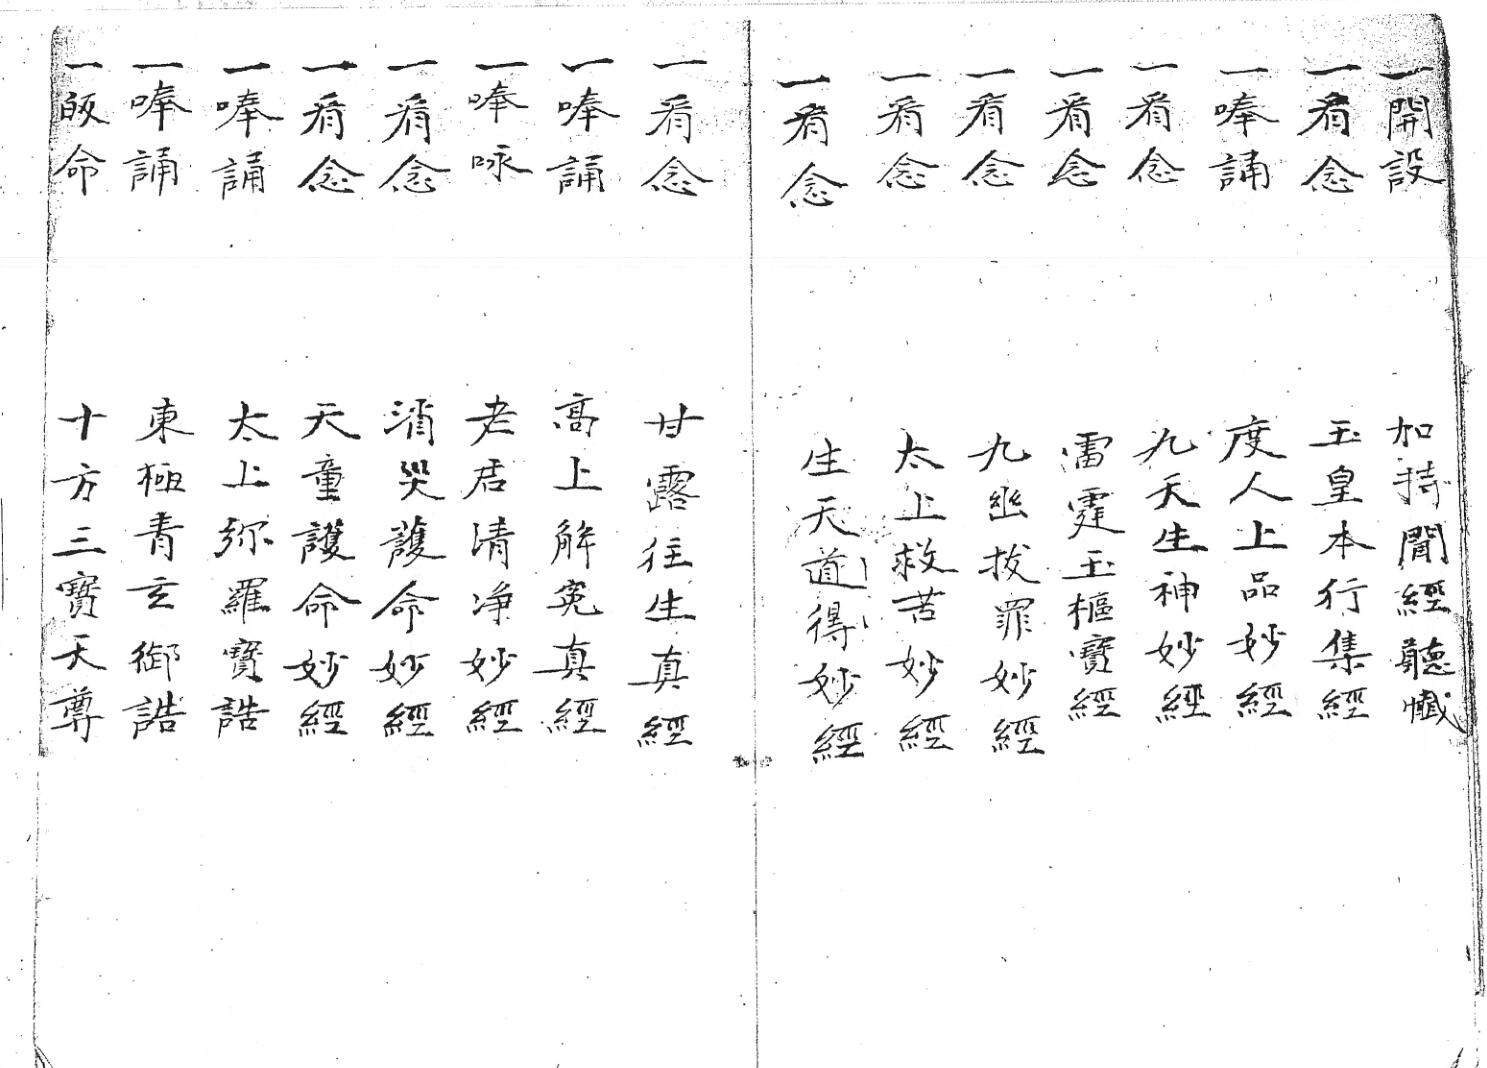 一開設 加持聞經聽懺
一看念 玉皇本行集經
一唪誦 度人上品妙經
一看念 九天生神妙經
一看念 雷霆玉樞寶經
一看念 九幽拔罪妙經
一看念 太上救苦妙經
一看念 生天道得妙經
一看念 甘露往生真經
一唪誦 高上解冤真經
一唪咏 老君清净妙經
一看念 消災護命妙經
一看念 天童護命妙經
一唪誦 太上弥羅寶誥
一唪誦 東極青玄御誥
一皈命 十方三寶天尊